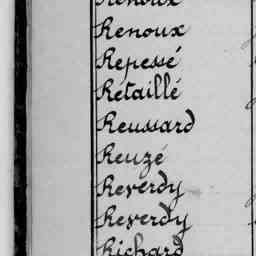 Renoux
Renoux
Repessé
Retaillé
Reussard
Reuzé
Reverdy
Reverdy
Richard